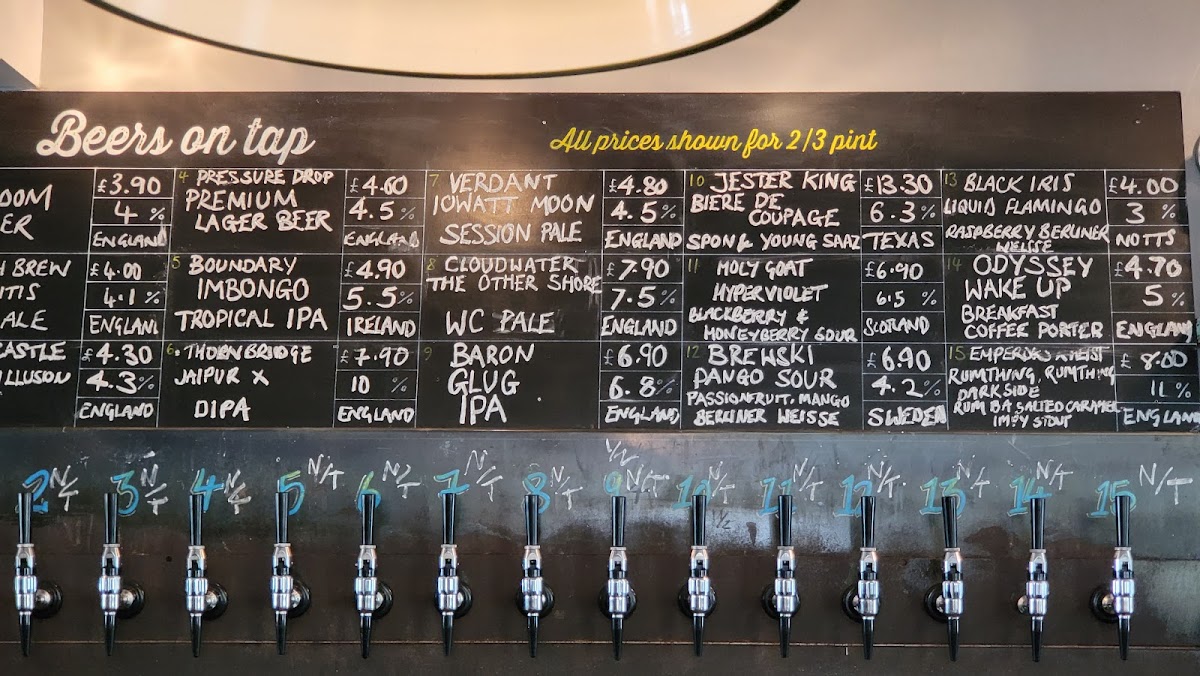 Beers on tap
All prices shown for 2/3 pint
£3.90
4 %
ENGLAND
£4.00
4.1 %
ALE
ENGLAND
£4.30
4.3%
ENGLAND
4 PRESSURE DROP
PREMIUM
LAGER BEER
£4.60
4.5 %
ENGLAND
5 BOUNDARY
IMBONGO
TROPICAL IPA
£4.90
5.5%
IRELAND
6 THORNBRIDGE
JAIPUR X
DIPA
£7.90
10 %
ENGLAND
7 VERDANT
10WATT MOON
SESSION PALE
£4.80
4.5%
ENGLAND
8 CLOUDWATER
THE OTHER SHORE
WC PALE
£7.90
7.5%
ENGLAND
9 BARON
GLUG
IPA
£6.90
6.8%
ENGLAND
10 JESTER KING
BIERE DE
COUPAGE
SPON & YOUNG SAAZ
£13.30
6.3%
TEXAS
11 HOLY GOAT
HYPERVIOLET
BLACKBERRY &
HONEYBERRY SOUR
£6.90
6.5 %
SCOTLAND
12 BREWSKI
PANGO SOUR
PASSIONFRUIT, MANGO
BERLINER WEISSE
£6.90
4.2%
SWEDEN
13 BLACK IRIS
LIQUID FLAMINGO
RASPBERRY BERLINER
WEISSE
£4.00
3 %
NOTTS
14 ODYSSEY
WAKE UP
BREAKFAST
COFFEE PORTER
£4.70
5 %
ENGLAND
15 EMPERORS
RUMTHING, RUMTHING
DARKSIDE
RUM BA SALTED CARAMEL
IMPY STOUT
£8.00
11 %
ENGLAND
2 N/T
3 N/T
4 N/T
5 N/T
6 N/T
7 N/T
8 N/T
9 1/2 N/T
10 N/T 1/2
11 N/T
12 N/T
13 N/T
14 N/T
15 N/T